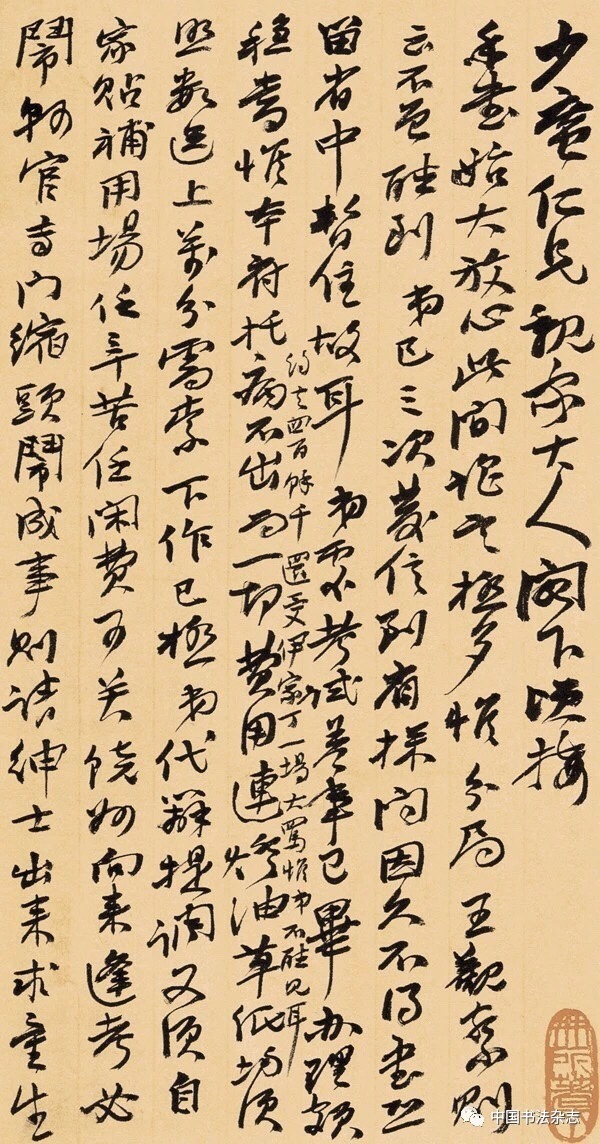 仁兄親家大人閣下頃接
手書始大放心此間謠言極多惟分局王觀察則
云不弟已三次發信到省探問因久不得書
留省中暫住故耳弟處考試差事已畢辦理頗
穩當惟本府托病不出而一切費用連燈油草紙均須
約去四百餘千還受伊家丁一場大罵惟弟不見耳
照數送上萬分需索下作已極弟代辦提調又須自
家貼補用場任辛苦任閑費可笑饒州向來逢考必
鬧官寺門縮頭鬧成事則請紳士出來求童生
中国书法杂志